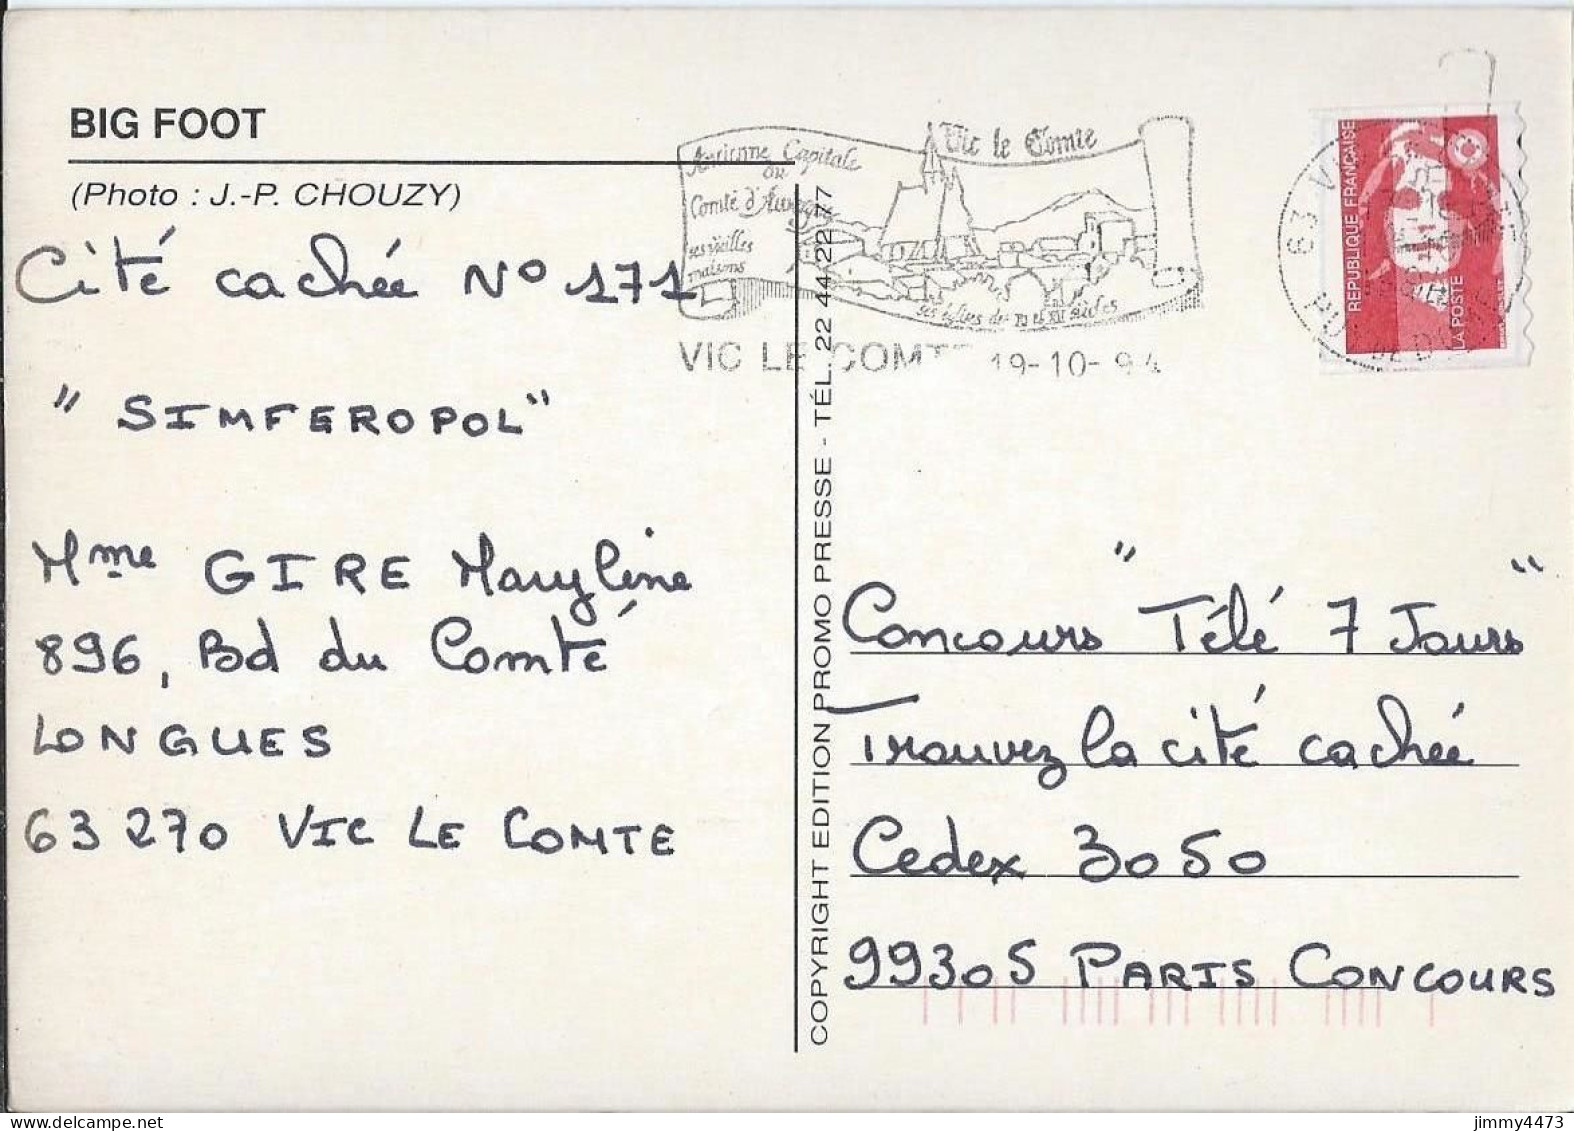 BIG FOOT
(Photo : J.-P. CHOUZY)
Cité cachée N° 171
" SIMFEROPOL "
Mme GIRE Maryline
896, Bd du Comté
LONGUES
63 270 VIC LE COMTE
Ancienne Capitale
du
Comté d'Auvergne
ses vieilles
maisons
Vic le Comte
ses églises des XI et XII siècles
VIC LE COMTE 19-10-94
REPUBLIQUE FRANÇAISE
LA POSTE
63 V
PUY DE D
COPYRIGHT EDITION PROMO PRESSE - TÉL. 22 44 22 77
Concours " Télé 7 Jours "
Trouvez la cité cachée
Cedex 3050
99305 PARIS CONCOURS
jimmy4473